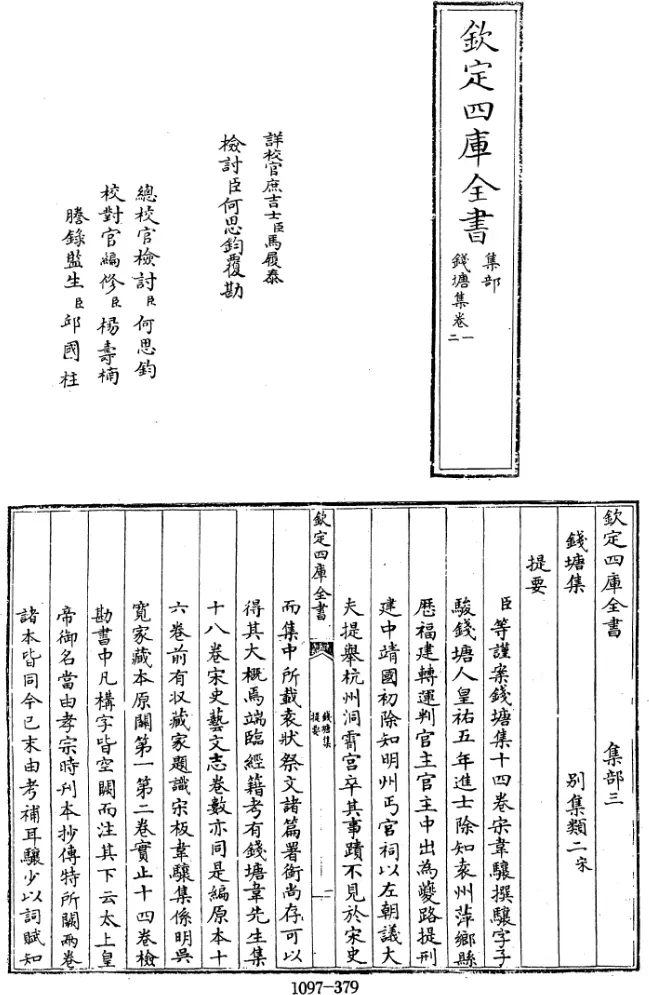 欽定四庫全書
集部
錢塘集卷一二
詳校官庶吉士臣馬履泰
檢討臣何思鈞覆勘
總校官檢討臣何思鈞
校對官編修臣楊壽楠
謄錄監生臣邱國柱
欽定四庫全書 集部三
錢塘集 別集類二宋
提要
臣等謹案錢塘集十四卷宋韋驤撰驤字子
駿錢塘人皇祐五年進士除知袁州萍鄉縣
歷福建轉運判官主官主中出為夔路提刑
建中靖國初除知明州丐宮祠以左朝議大
夫提舉杭州洞霄宮卒其事蹟不見於宋史
欽定四庫全書
錢塘集
提要
一
而集中所載表狀祭文諸篇署銜尚存可以
得其大概馬端臨經籍考有錢塘韋先生集
十八卷宋史藝文志卷數亦同是編原本十
六卷前有収藏家題識宋板韋驤集係明吳
寬家藏本原闕第一第二卷實止十四卷檢
勘書中凡構字皆空闕而注其下云太上皇
帝御名當由孝宗時刋本抄傳特所闕兩卷
諸本皆同今已末由考補耳驤少以詞賦知
1097-379